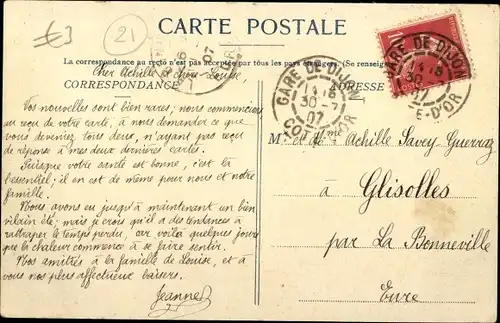 €3
21
CARTE POSTALE
La correspondance au recto n'est pas acceptée par tous les pays étrangers. (Se renseigner
Cher Achille et chère Louise,
CORRESPONDANCE
ADRESSE
Vos nouvelles sont bien rares; nous commencions
au reçu de votre carte, à nous demander ce que
vous deveniez tous deux, n'ayant pas reçu
de réponse à mes deux dernières cartes.
Puisque votre santé est bonne, c'est là
l'essentiel; il en est de même pour nous et notre
famille.
Nous avons eu jusqu'à maintenant un bien
vilain été; mais je crois qu'il a des tendances à
rattraper le temps perdu, car voilà quelques jours
que la chaleur commence à se faire sentir.
Nos amitiés à la famille de Louise, et à
vous nos plus affectueux baisers.
Jeanne
GARE DE DIJON
30-7
07
COTE-D'OR
GARE DE DIJON
30
E-D'OR
10
M. et Mme Achille Savey Guerraz
à
Glisolles
par La Bonneville
Eure